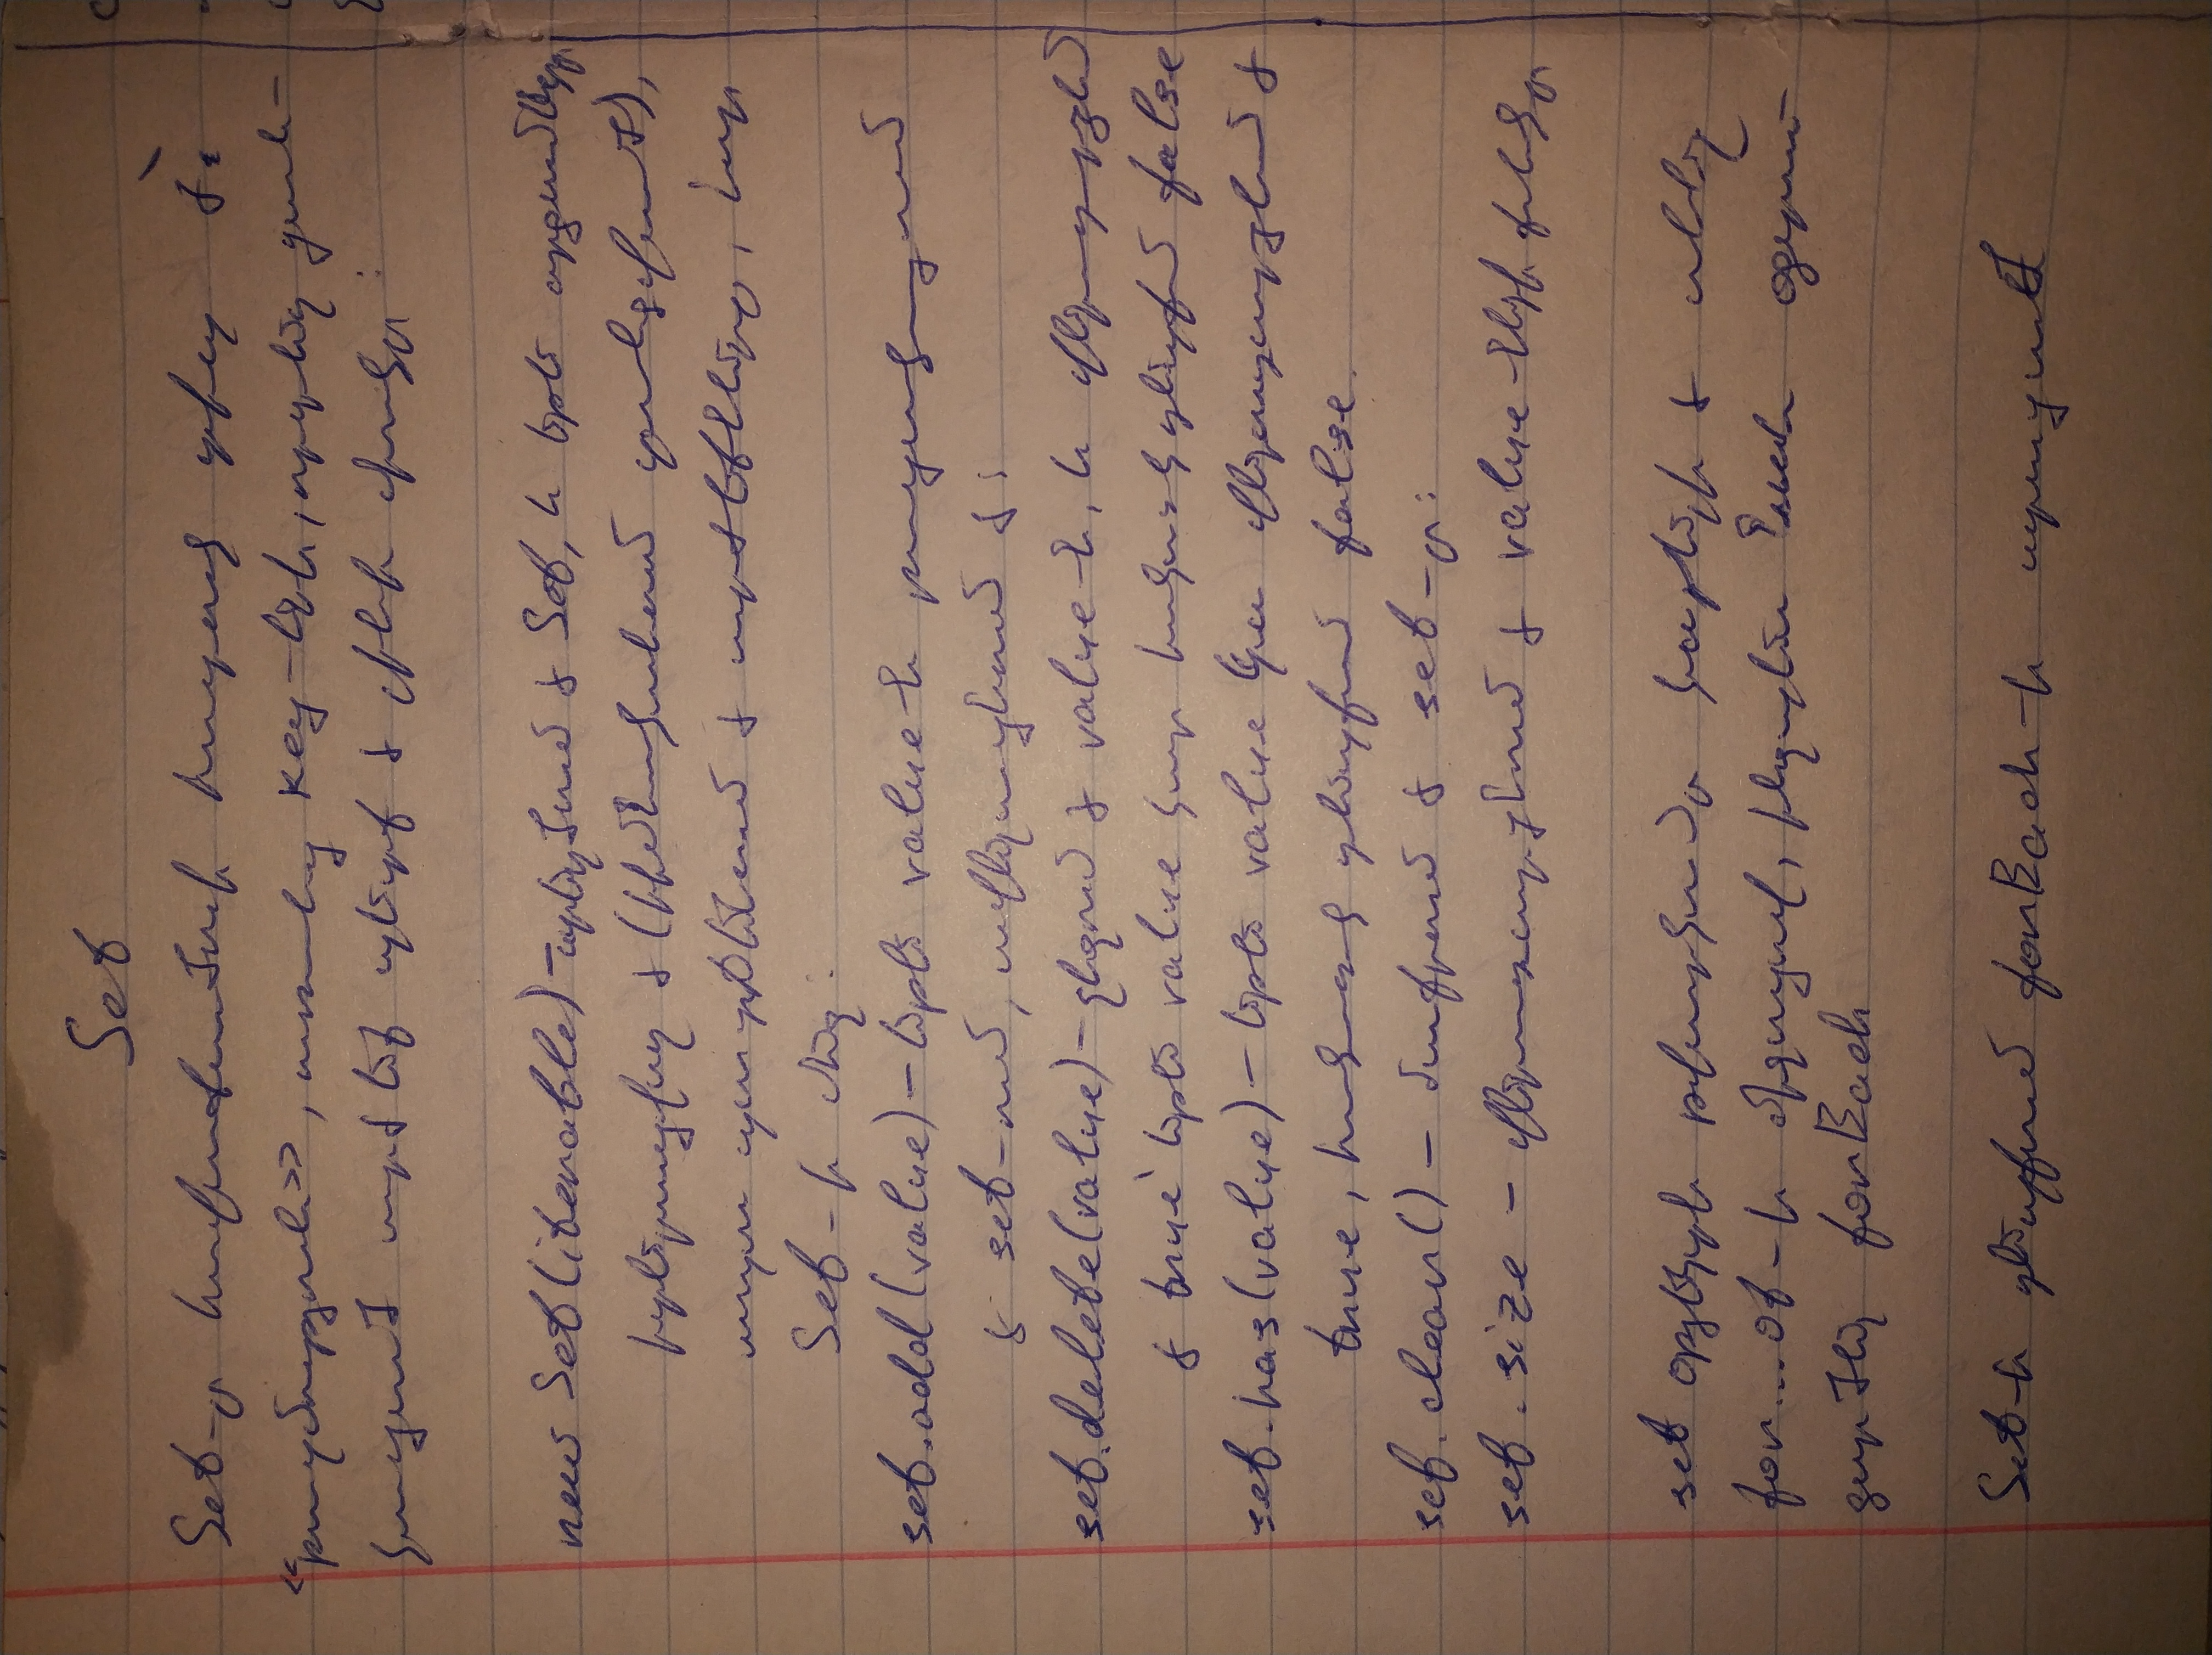 Set
Set-ը հավաքածուի հատուկ տիպ է՝
«բազմություն», առանց key-երի, որտեղ ցան-
կացած արժեք պետք է լինի միակը։
new Set(iterable)-ստեղծում է Set, և եթե արգումենտը
իտերացվող է (հիմնականում զանգված),
ապա պատճենում է արժեքները, նոր
Set-ի մեջ։
set.add(value)-եթե value-ն բացակայում
է set-ում, ավելացնում է։
set.delete(value)-ջնջում է value-ն, և վերադարձնում
է true՝ եթե value կար հակառակ դեպքում false
set.has(value)-եթե value կա վերադարձնում է
true, հակառակ դեպքում false.
set.clear() - մաքրում է set-ը։
set.size - վերադարձնում է value-ների քանակը
set օբյեկտի թվարկումը կարելի է անել
for...of-ի միջոցով, ինչպես նաև օգտա-
գործել forEach
Set-ի դեպքում forEach-ի